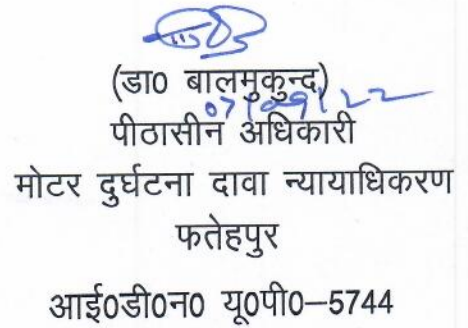 (डा0 बालमुकुन्द)
07/09/22
पीठासीन अधिकारी
मोटर दुर्घटना दावा न्यायाधिकरण
फतेहपुर
आई0डी0न0 यू0पी0–5744